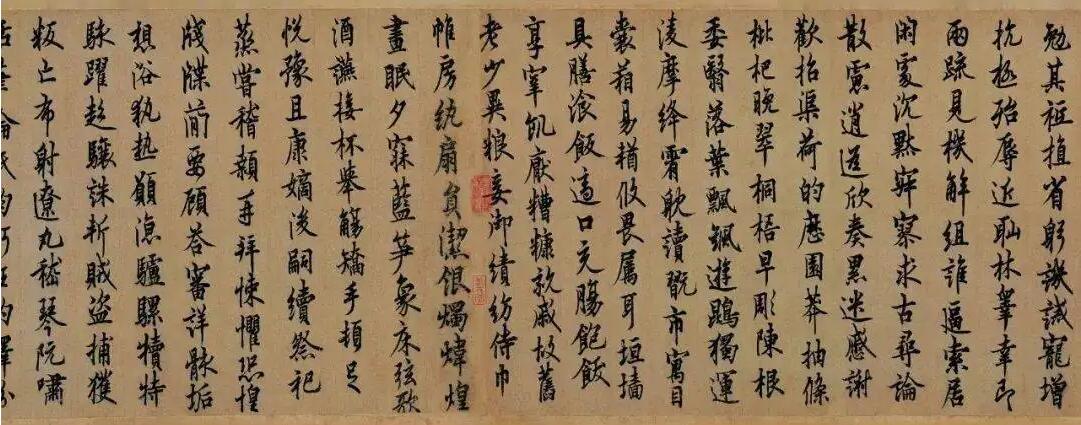 勉其祗植省躬譏誡寵增
抗極殆辱近恥林睪幸即
兩疏見機解組誰逼索居
閑處沉默寂寥求古尋論
散慮逍遙欣奏累遣慼謝
歡招渠荷的歷園莽抽條
枇杷晚翠桐梧早彫陳根
委翳落葉飄颻遊鵾獨運
淩摩絳霄耽讀翫市寓目
囊箱易輶攸畏属耳垣墻
具膳飡飯適口充腸飽飫
享宰飢厭糟糠親戚故舊
老少異粮妾御績紡侍巾
帷房紈扇員潔銀燭煒煌
晝眠夕寐藍笋象床弦歌
酒讌接杯舉觴矯手頓足
悅豫且康嫡後嗣續祭祀
蒸嘗稽顙再拜悚懼恐惶
牋牒簡要顧答審詳骸垢
想浴執熱願涼驢騾犢特
駭躍超驤誅斬賊盜捕獲
叛亡布射遼丸嵇琴阮嘯
恬筆倫紙鈞巧任釣釋紛